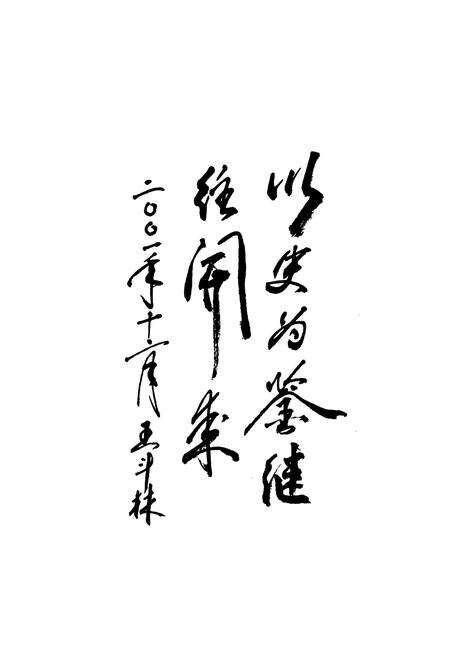 以史为鉴继
往开来
二〇〇一年十二月王斗林